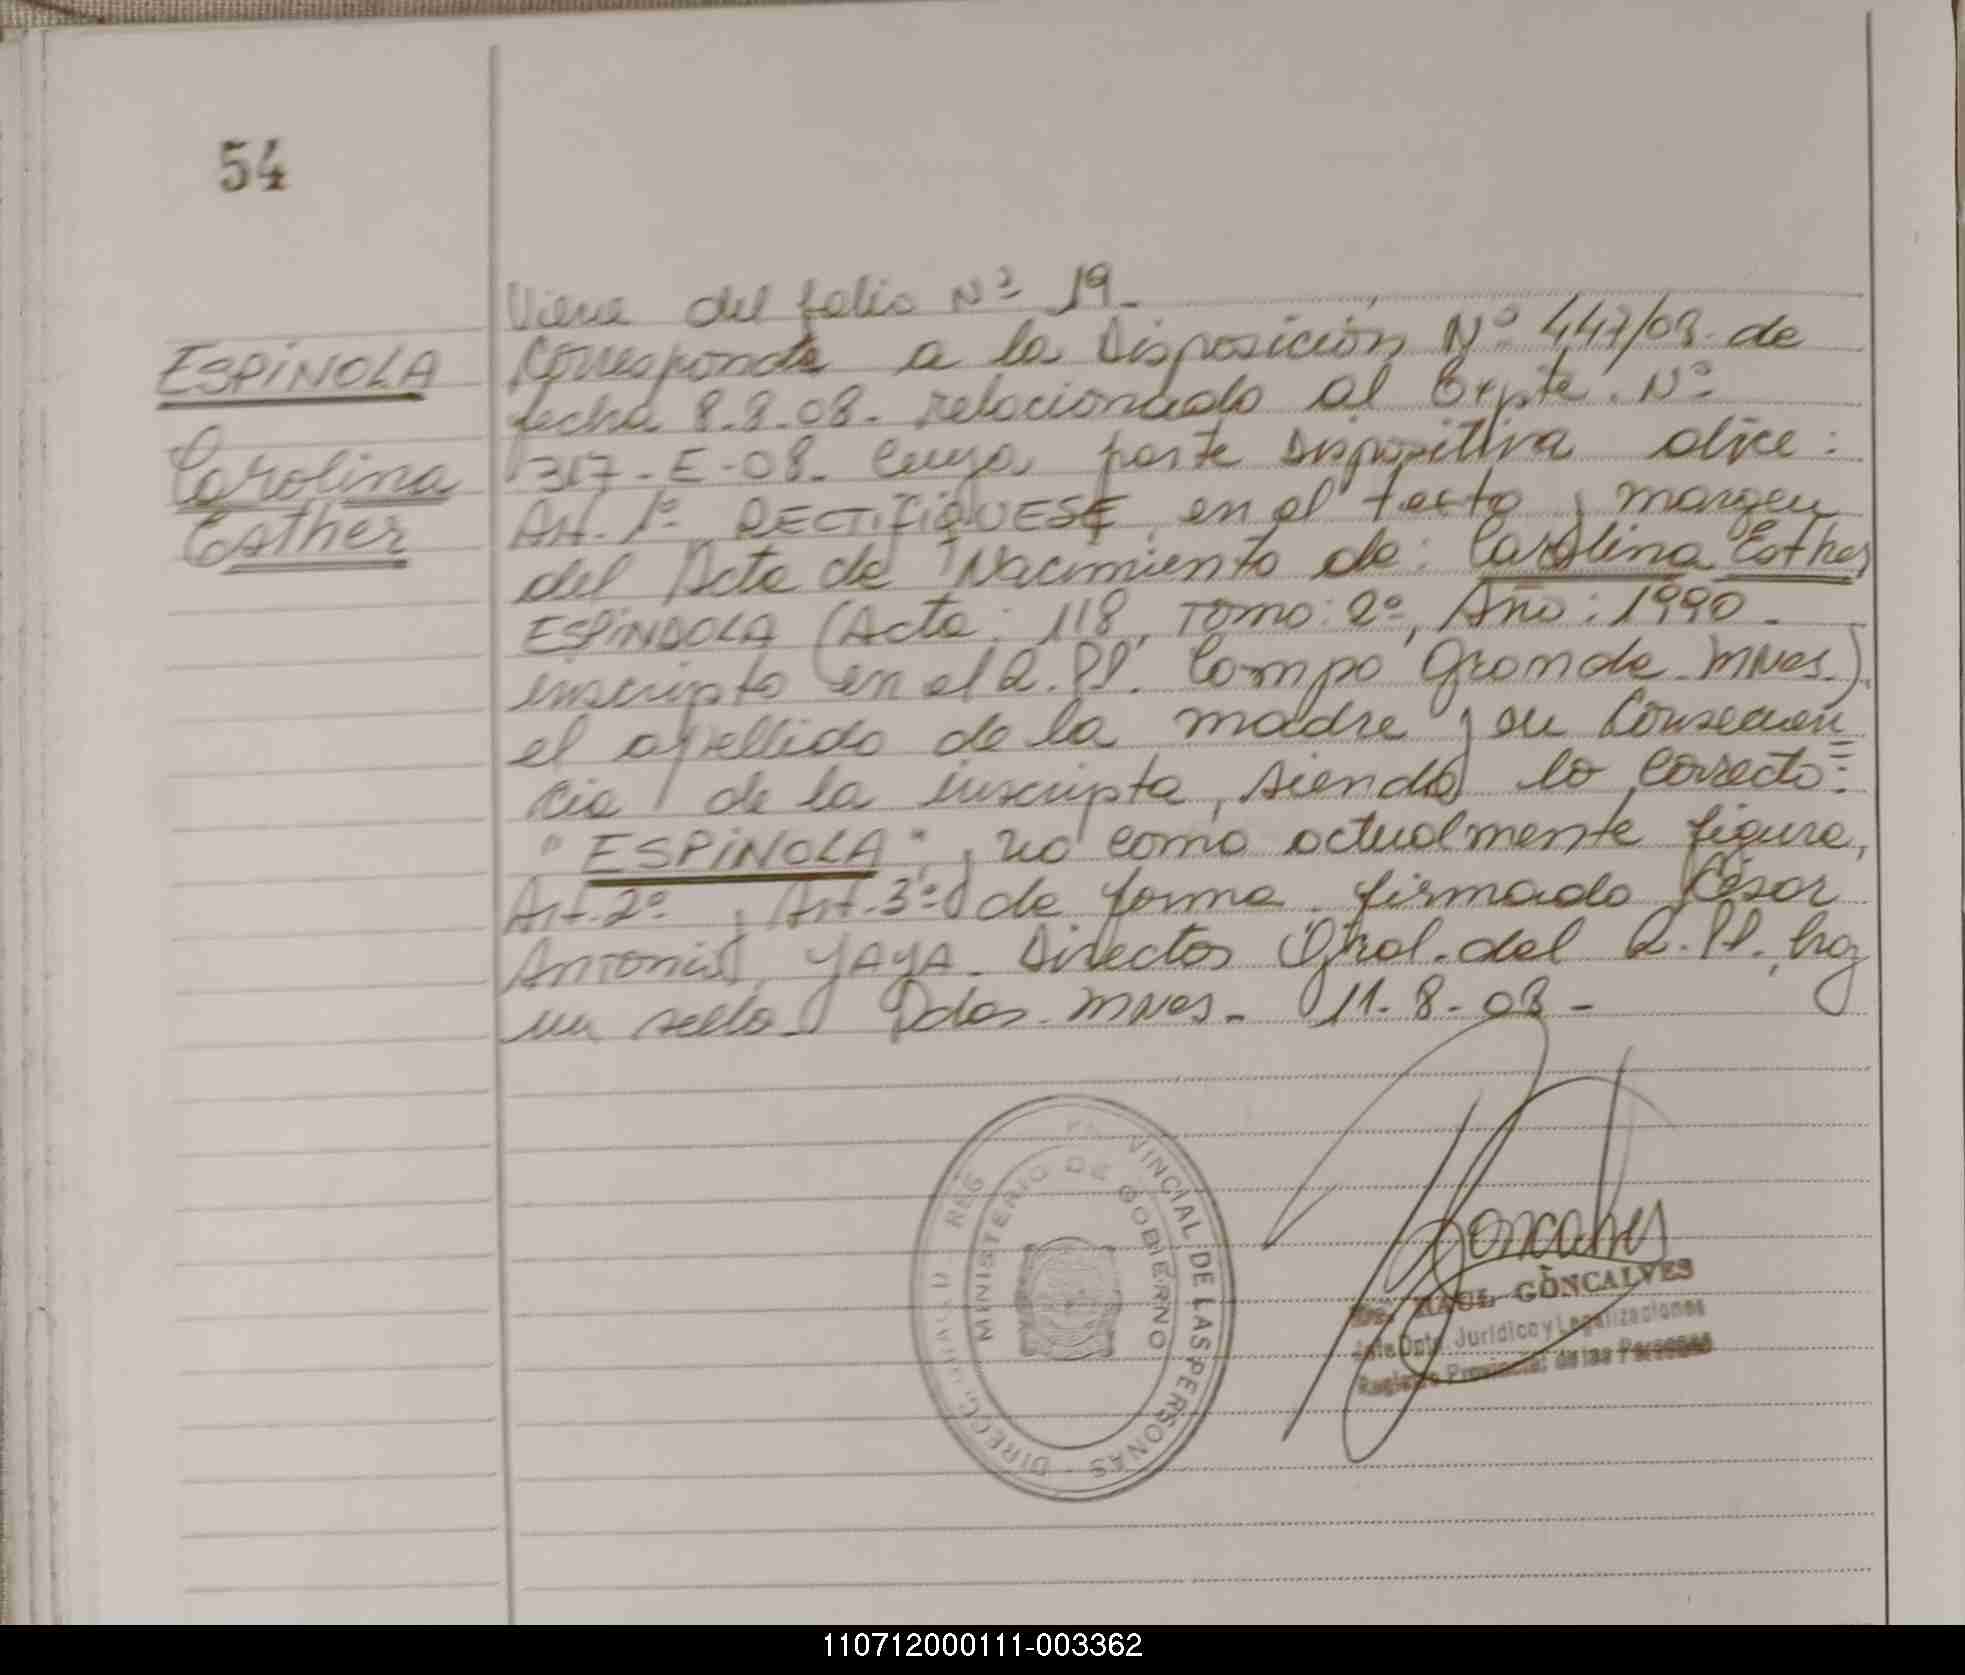 54
Viene del folio Nº 19.-
ESPINOLA
Carolina
Esther
Corresponde a la Disposición Nº 447/08. de
fecha 8.8.08. relacionado al Expte. Nº
1317-E-08. Cuya parte Dispositiva dice:
Art. 1º RECTIFIQUESE, en el texto y margen
del Acta de Nacimiento de: Carolina Esther
ESPINDOLA (Acta: 118, Tomo: 2º, Año: 1990.
inscripto en el R.PP. Campo Grande. Mnes.)
el apellido de la madre y en Consecuen=
cia de la inscripta, siendo lo correcto:
"ESPINOLA" y no como actualmente figura,
Art. 2º y Art. 3º de forma. firmado César
Antonio YAYA. Director Gral. del R.PP. hay
un sello. Pdas. Mnes. 11.8.08-
DIRECC. GRAL. D REG VINCIAL DE LAS PERSONAS -
MINISTERIO DE GOBIERNO
Goncalves
RAUL GONCALVES
Jefe Dpto. Jurídico y Legalizaciones
Registro Provincial de las Personas
110712000111-003362